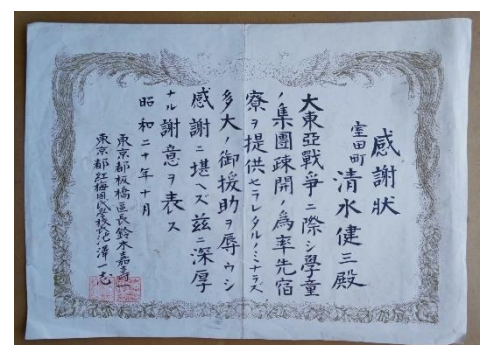 感謝状
室田町
清水健三殿
大東亞戰爭ニ際シ學童
ノ集團疎開ノ爲率先宿
寮ヲ提供セラレタルノミナラズ
多大ノ御援助ヲ辱ウシ
感謝ニ堪ヘズ茲ニ深厚
ナル謝意ヲ表ス
昭和二十年十月
東京都板橋區長鈴木嘉壽一
東京都紅梅國民學校長池澤一志